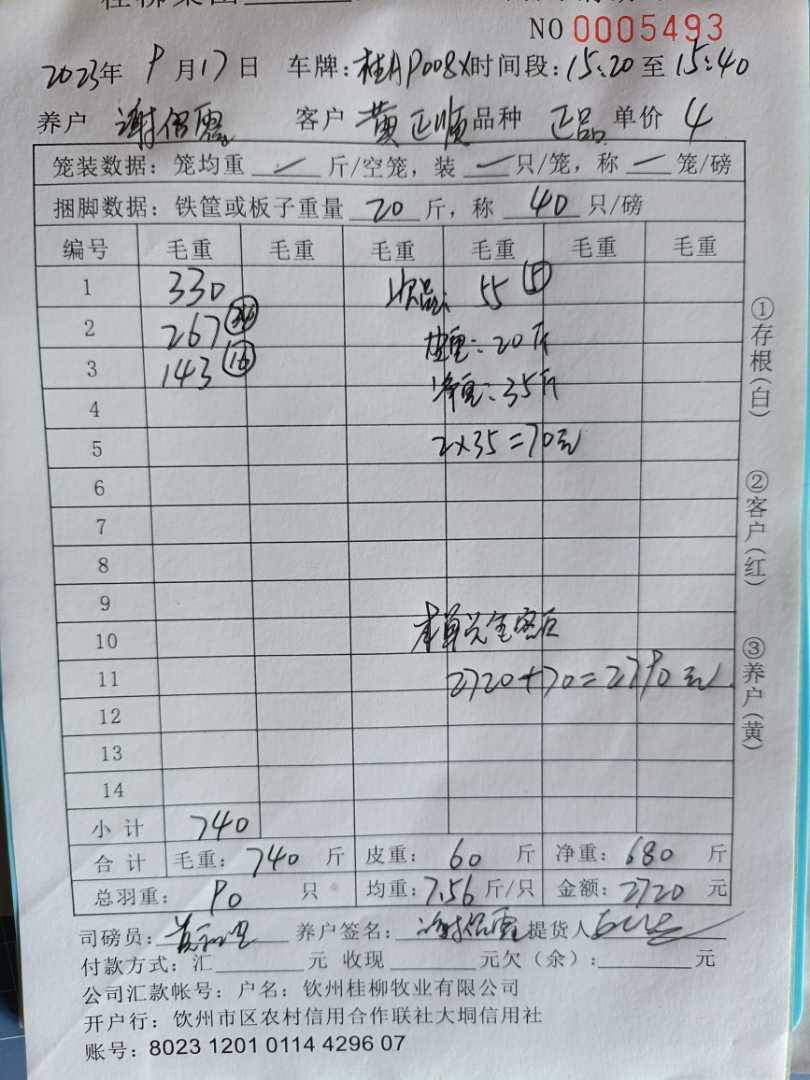 NO 0005493
2023年 9月17日 车牌:桂AP008X时间段:15:20至15:40
养户 谢绍霞 客户 黄正顺 品种 正品 单价 4
笼装数据: 笼均重 / 斤/空笼, 装 / 只/笼, 称 / 笼/磅
捆脚数据: 铁筐或板子重量 20 斤, 称 40 只/磅
编号 毛重 毛重 毛重 毛重 毛重 毛重
1 330 次品: 55 (5)
2 267 (34) 皮重: 20斤
3 143 (16) 净重: 35斤
4
5 2×35=70元
6
7
8
9
10
11 2720+70=2790元
12
13
14
小计 740
合计 毛重: 740 斤 皮重: 60 斤 净重: 680 斤
总羽重: 90 只 均重: 7.56 斤/只 金额: 2720 元
司磅员: 养户签名: 谢绍霞 提货人
付款方式: 汇 元 收现 元欠(余): 元
公司汇款帐号: 户名: 钦州桂柳牧业有限公司
开户行: 钦州市区农村信用合作联社大垌信用社
账号: 8023 1201 0114 4296 07
①存根(白)
②客户(红)
③养户(黄)